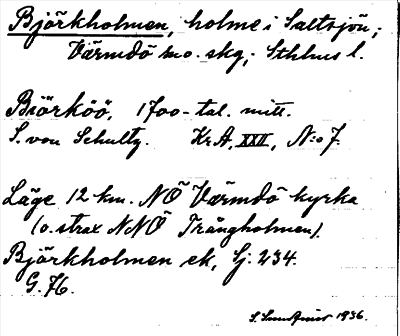 Björkholmen, holme i Saltsjön;
Värmdö sn o. skg; Sthlms l.
Biörköö, 1700-tal. mitt.
S. von Schultz. Kr.A, XXII, N:o 7.
Läge 12 km. NÖ Värmdö kyrka
(o. strax NNÖ Trångholmen).
Björkholmen ek, Gj. 234.
G. 76.
1936.